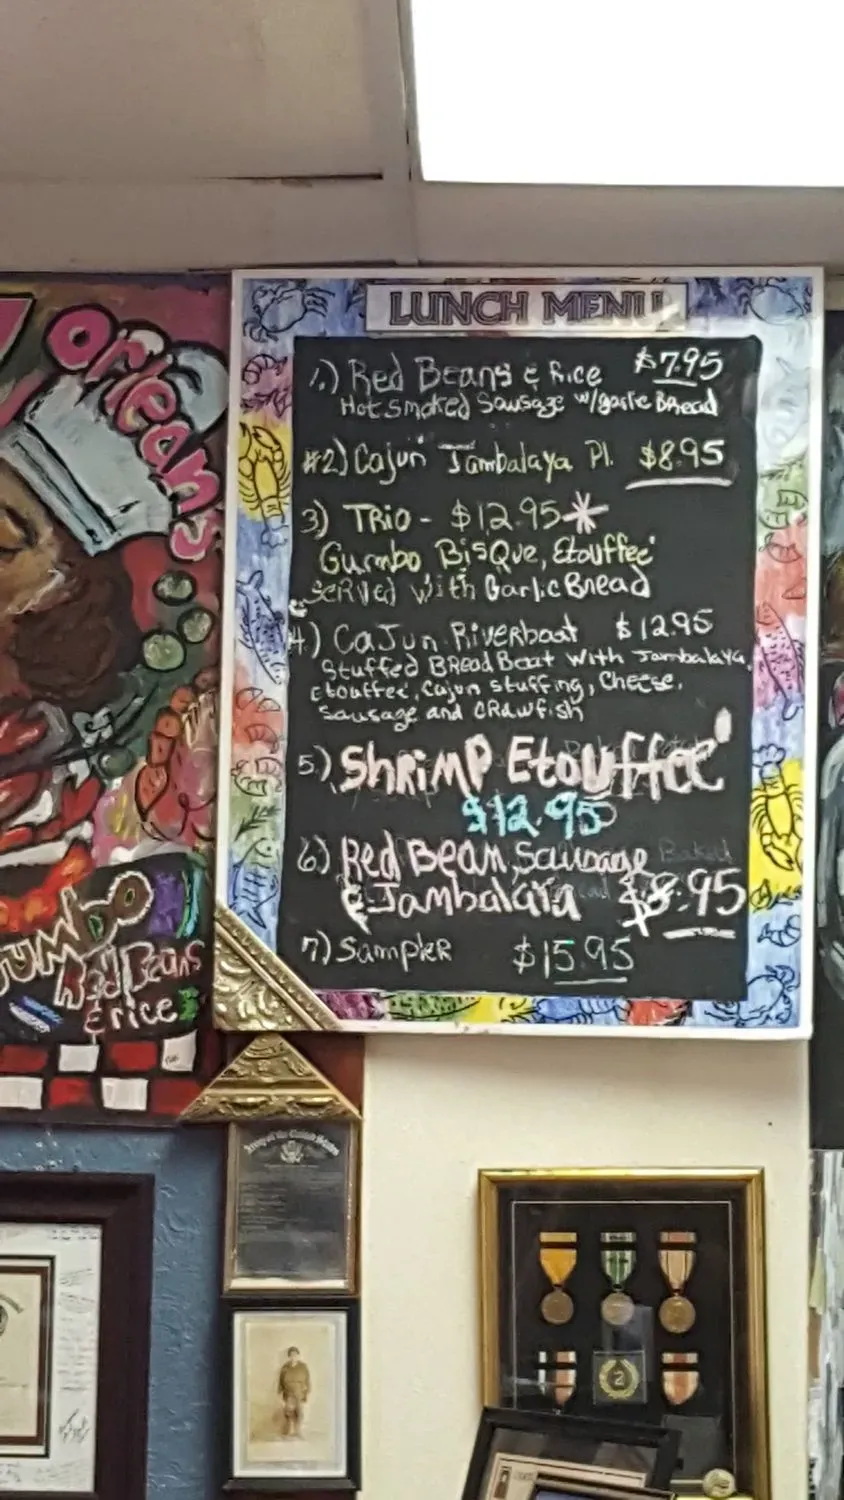 Orleans
LUNCH MENU
1.) Red Beans & Rice $7.95
Hot Smoked Sausage w/garlic Bread
#2) Cajun Jambalaya Pl. $8.95
3) TRIO - $12.95*
Gumbo BisQue, Etouffee'
SeRVed with Garlic Bread
4.) CaJun Riverboat $12.95
Stuffed BRead Boat with Jambalaya,
Etouffee', Cajun stuffing, Cheese,
Sausage and CRawfish
5.) ShRiMP Etouffee'
$12.95
6.) Red Bean, Sausage
& Jambalaya $8.95
7) Sampler $15.95
Gumbo
Red Beans
& rice
Army of the United States
2